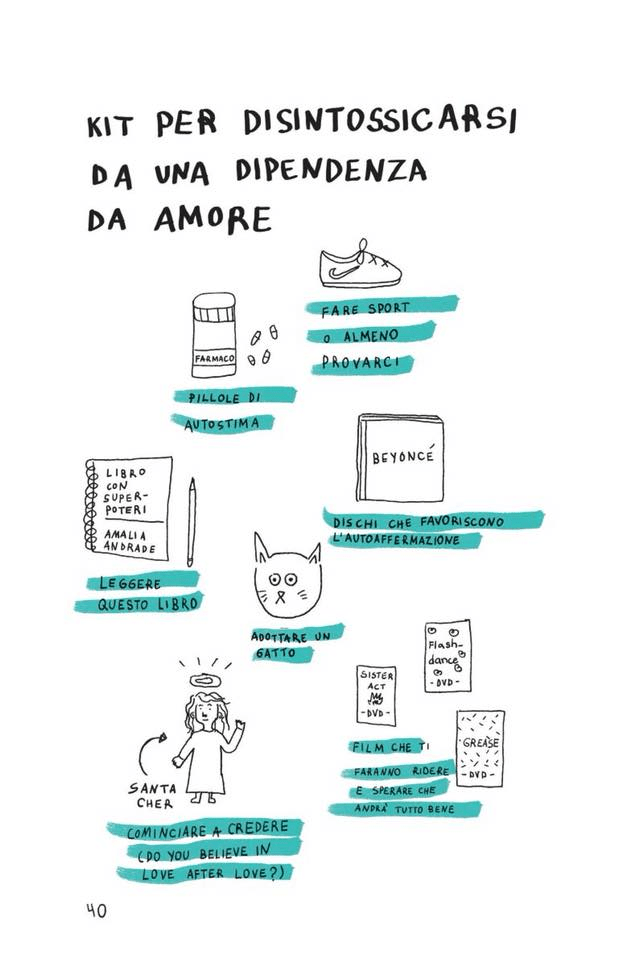 KIT PER DISINTOSSICARSI
DA UNA DIPENDENZA
DA AMORE
FARE SPORT
O ALMENO
PROVARCI
FARMACO
PILLOLE DI
AUTOSTIMA
BEYONCÉ
DISCHI CHE FAVORISCONO
L'AUTOAFFERMAZIONE
LIBRO
CON
SUPER-
POTERI
AMALIA
ANDRADE
LEGGERE
QUESTO LIBRO
ADOTTARE UN
GATTO
Flash-
dance
-DVD-
SISTER
ACT
-DVD-
GREASE
-DVD-
FILM CHE TI
FARANNO RIDERE
E SPERARE CHE
ANDRÀ TUTTO BENE
SANTA
CHER
COMINCIARE A CREDERE
(DO YOU BELIEVE IN
LOVE AFTER LOVE?)
40